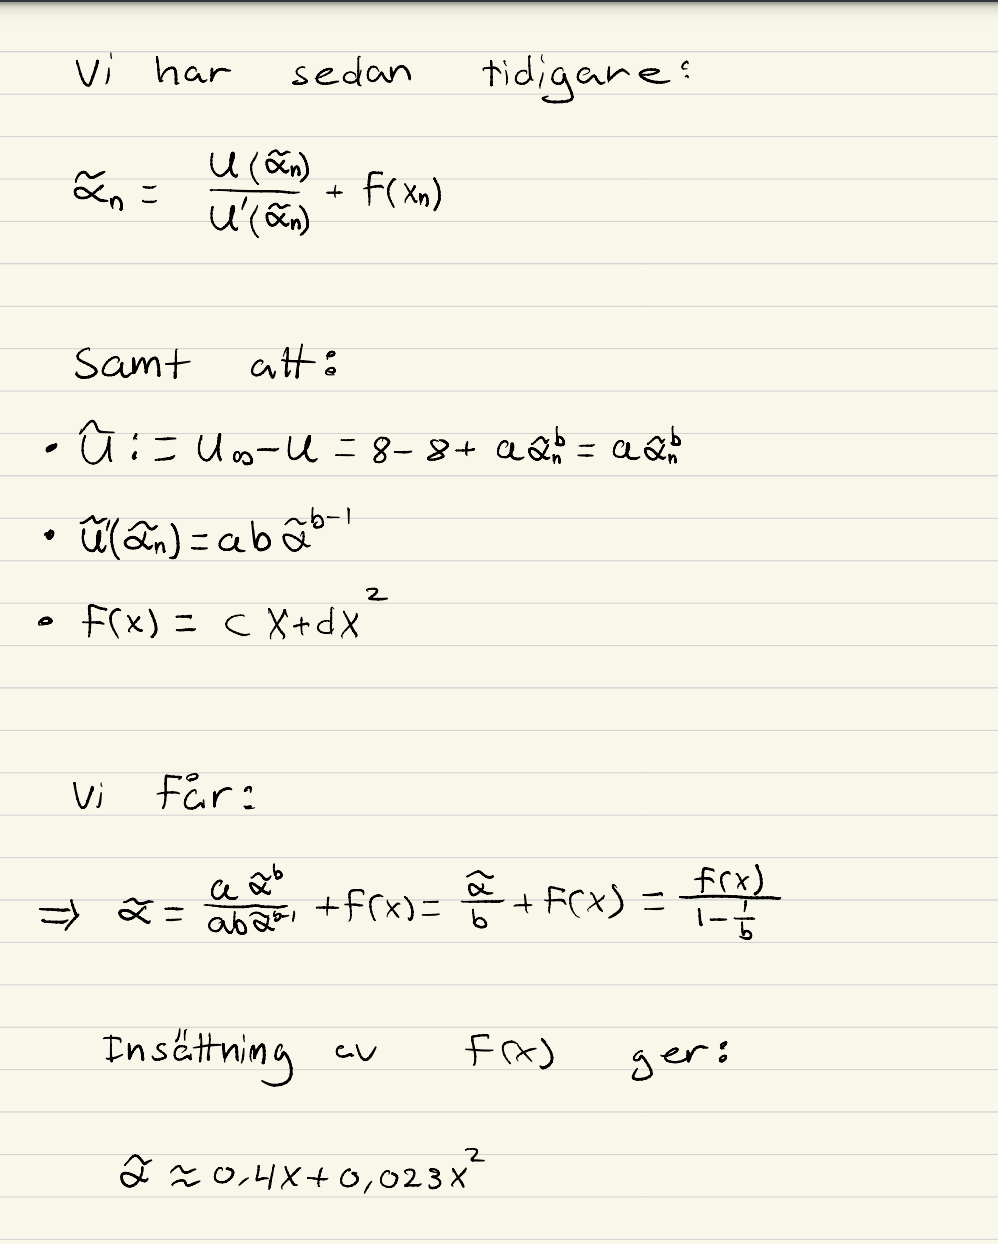 Vi har sedan tidigare:
α̃ₙ = U(α̃ₙ)/U'(α̃ₙ) + F(xₙ)
Samt att:
• Ũ := U∞ - U = 8 - 8 + aα̃ₙᵇ = aα̃ₙᵇ
• Ũ'(α̃ₙ) = abα̃ᵇ⁻¹
• F(x) = cx + dx²
Vi får:
⇒ α̃ = aα̃ᵇ/abα̃ᵇ⁻¹ + F(x) = α̃/b + F(x) = F(x)/(1 - 1/b)
Insättning av F(x) ger:
α̃ ≈ 0,4x + 0,023x²